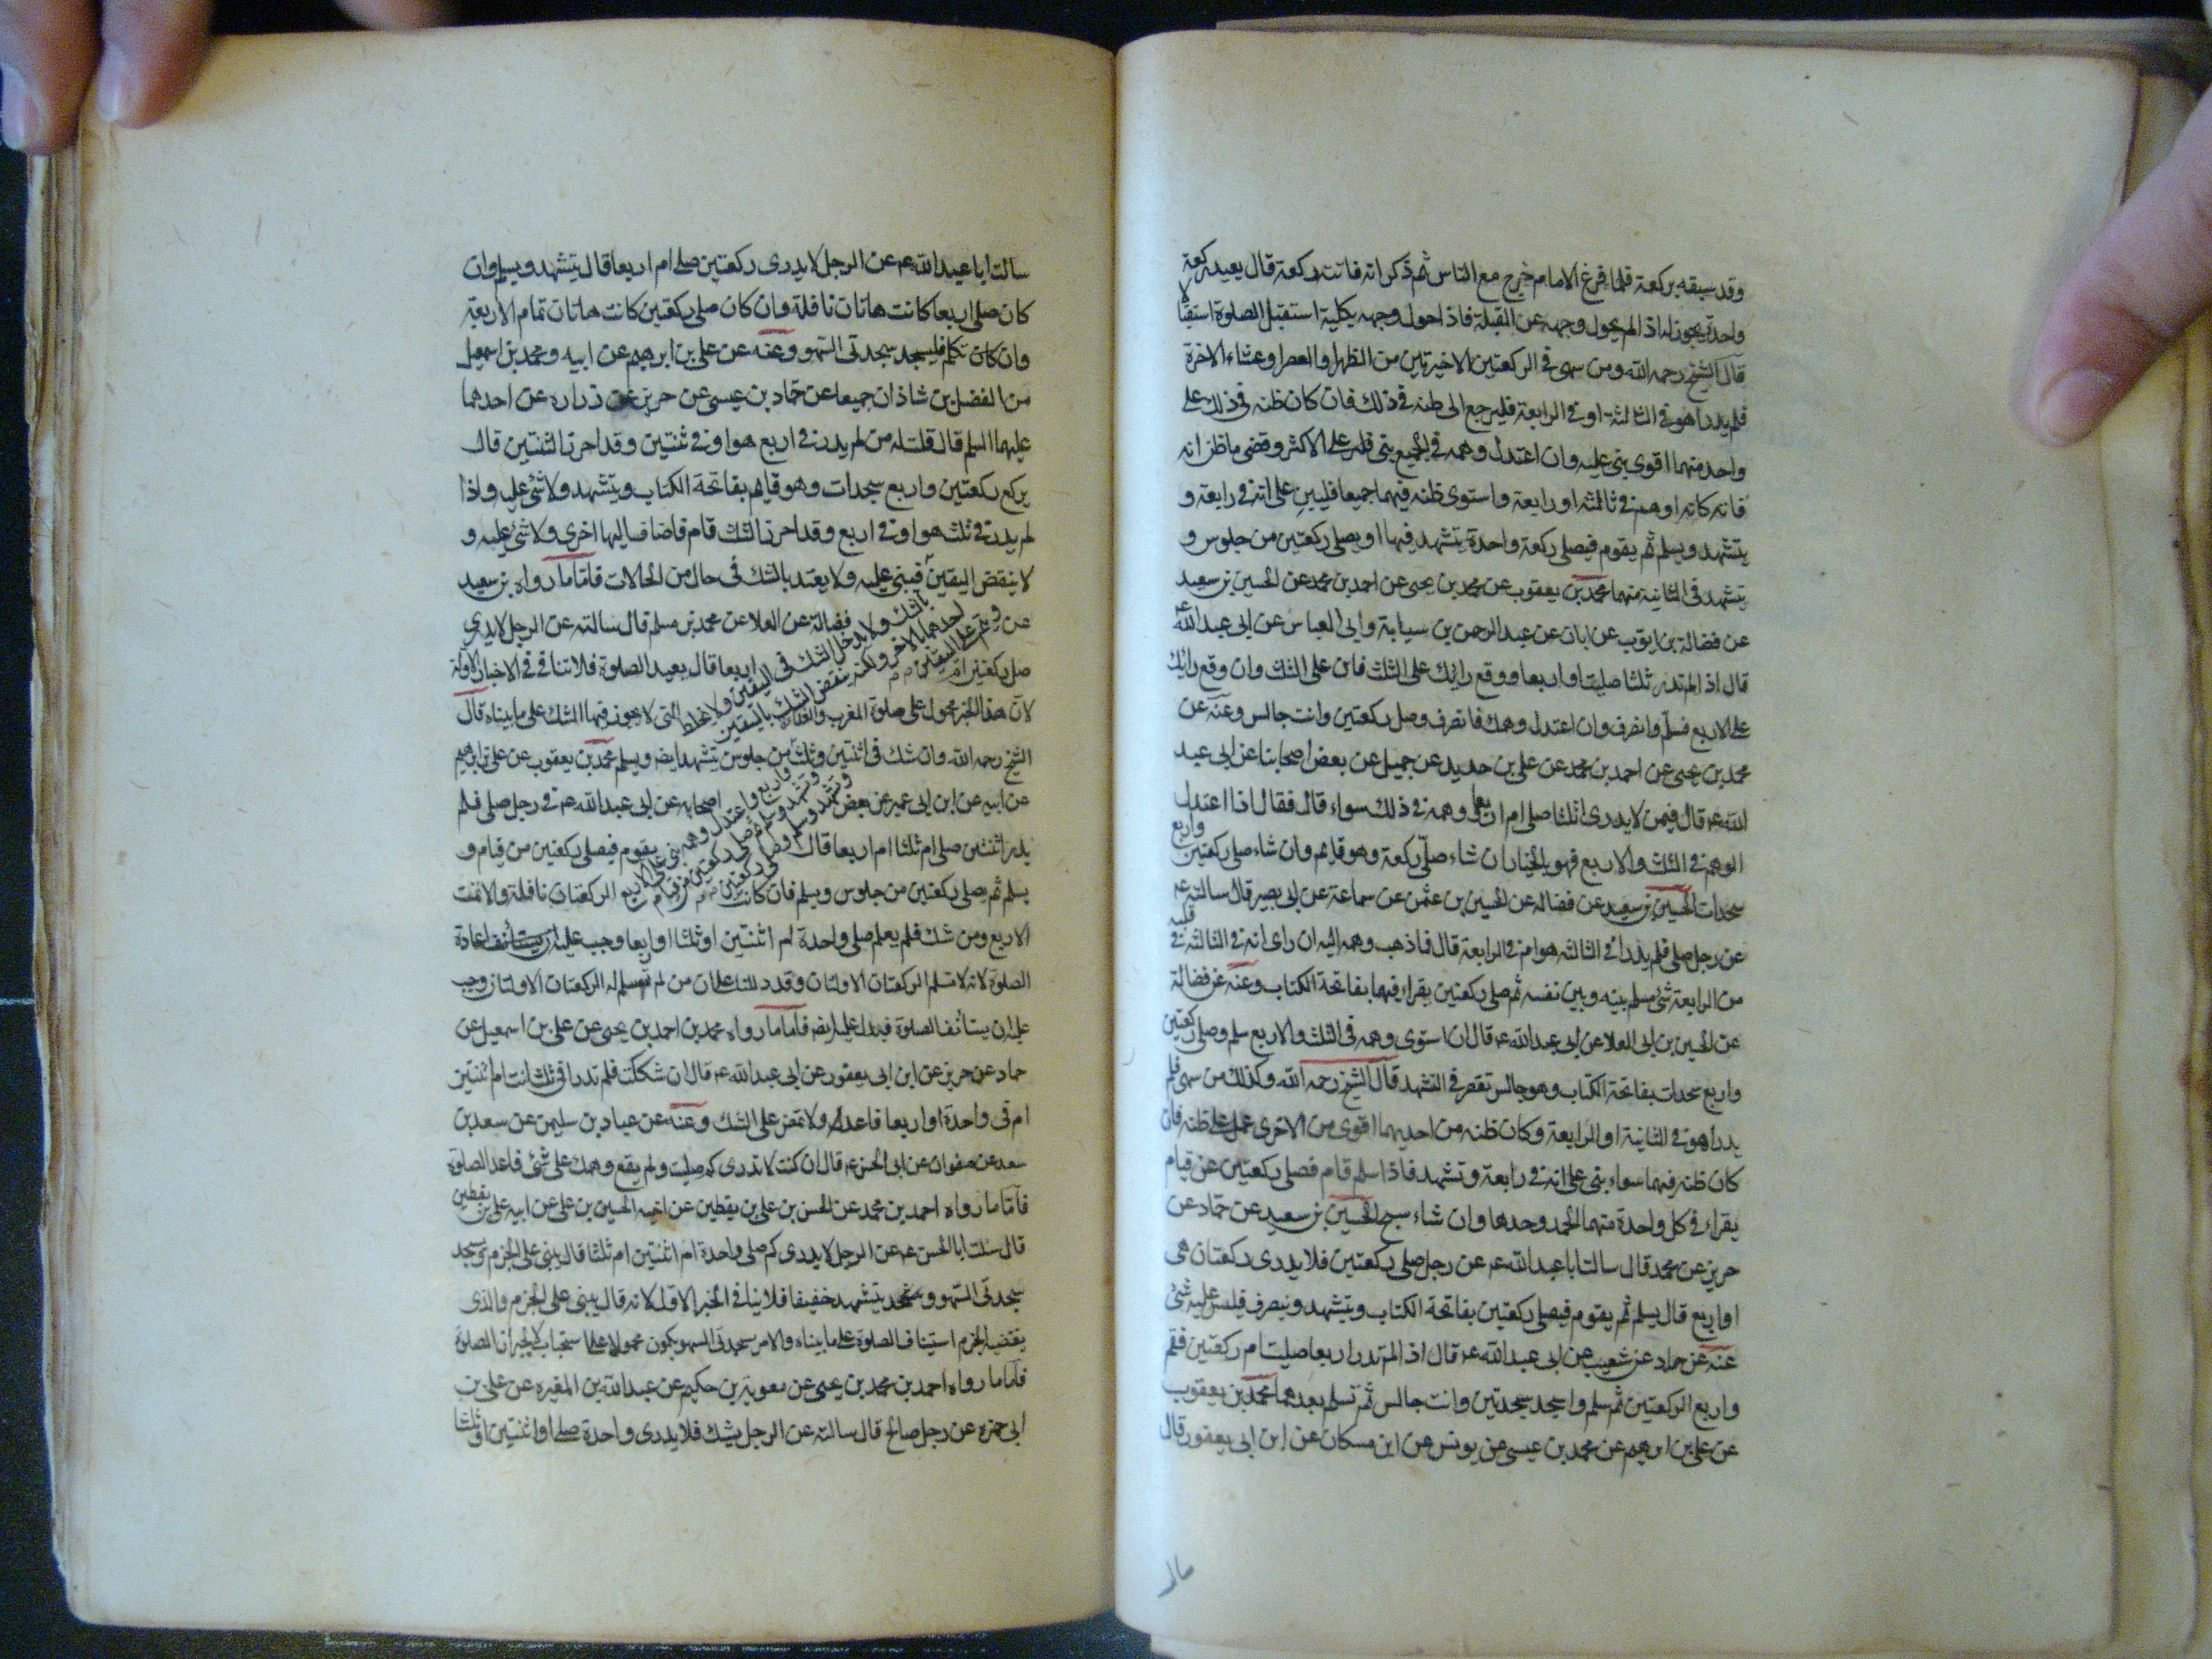 وقد سبقه بركعة فلما فرغ الامام خرج مع الناس ثم ذكر انه فاتته ركعة قال يعيد ركعة
واحدة يجوز له اذا لم يحول وجهه عن القبلة فاذا حول وجهه بكلية استقبل الصلوة استقبالا
قال الشيخ رحمه الله ومن سهى فى الركعتين الاخيرتين من الظهر او العصر او عشاء الاخرة
فلم يدر اهو فى الثالثة او فى الرابعة فليرجع الى ظنه فى ذلك فان كان ظنه فى ذلك على
واحد منهما اقوى بنى عليه وان اعتدل وهمه فى الجميع بنى على الاكثر وقضى ما ظن انه
فاته كانه اوهم فى ثالثه او رابعة واستوى ظنه فيهما جميعا فليبن على انه فى رابعة و
يتشهد ويسلم ثم يقوم فيصلى ركعة واحدة يتشهد فيها او يصلى ركعتين من جلوس و
يتشهد فى الثانية منهما محمد بن يعقوب عن محمد بن يحيى عن احمد بن محمد عن الحسين بن سعيد
عن فضالة بن ايوب عن ابان عن عبد الرحمن بن سيابة وابى العباس عن ابى عبد الله ع
قال اذا لم تدر ثلثا صليت او اربعا ووقع رايك على الثلث فابن على الثلث وان وقع رايك
على الاربع فسلم وانصرف وان اعتدل وهمك فانصرف وصل ركعتين وانت جالس وعنه عن
محمد بن يحيى عن احمد بن محمد عن على بن حديد عن جميل عن بعض اصحابنا عن ابى عبد
الله ع قال فيمن لا يدرى اثلثا صلى ام اربعا ووهمه فى ذلك سواء قال فقال اذا اعتدل
الوهم فى الثلث والاربع فهو بالخيار ان شاء صلى ركعة وهو قايم وان شاء صلى ركعتين واربع
سجدات الحسين بن سعيد عن فضاله عن الحسين بن عثمن عن سماعة عن ابى بصير قال سالته ع
عن رجل صلى فلم يدر افى الثالثه هو ام فى الرابعة قال فما ذهب وهمه اليه ان راى انه فى الثالثه فى قلبه
من الرابعة شئ سلم بينه وبين نفسه ثم صلى ركعتين يقراء فيهما بفاتحة الكتاب وعنه عن فضالة
عن الحسين بن ابى العلا عن ابى عبد الله ع قال ان استوى وهمه فى الثلث والاربع سلم وصلى ركعتين
واربع سجدات بفاتحة الكتاب وهو جالس تقصر فى التشهد قال الشيخ رحمه الله وكذلك من سهى فلم
يدر اهو فى الثانية او الرابعة وكان ظنه من احديهما اقوى من الاخرى عمل على ظنه فان
كان ظنه فيهما سواء بنى على انه فى رابعة وتشهد فاذا سلم قام فصلى ركعتين عن قيام
يقراء فى كل واحدة منهما الحمد وحدها وان شاء سبح الحسين بن سعيد عن حماد عن
حريز عن محمد قال سالت ابا عبد الله ع عن رجل صلى ركعتين فلا يدرى ركعتان هى
او اربع قال يسلم ثم يقوم فيصلى ركعتين بفاتحة الكتاب ويتشهد وينصرف فليس عليه شئ
عنه عن حماد عن شعيب عن ابى عبد الله ع قال اذا لم تدر اربعا صليت ام ركعتين فقم
واربع الركعتين ثم سلم واسجد سجدتين وانت جالس ثم تسلم بعدهما محمد بن يعقوب
عن على بن ابرهيم عن محمد بن عيسى عن يونس عن ابن مسكان عن ابن ابى يعفور قال
سالت ابا عبد الله ع عن الرجل لا يدرى ركعتين صلى ام اربعا قال يتشهد ويسلم وان
كان صلى اربعا كانت هاتان نافلة وان كان صلى ركعتين كانت هاتان تمام الاربعة
وان كان تكلم فليسجد سجدتى السهو وعنه عن على بن ابرهيم عن ابيه ومحمد بن اسمعيل
من الفضل بن شاذان جميعا عن حماد بن عيسى عن حريز عن زراره عن احدهما
عليهما السلم قال قلت له من لم يدر فى اربع هو او فى ثنتين وقد احرز الثنتين قال
يركع ركعتين واربع سجدات وهو قايم بفاتحة الكتاب ويتشهد ولا شئ عليه واذا
لم يدر فى ثلث هو او فى اربع وقد احرز الثلث قام فاضاف اليها اخرى ولا شئ عليه و
لا ينقض اليقين فيبنى عليه ولا يعتد بالشك فى حال من الحالات فاما ما رواه بن سعيد
بالشك ولا يدخل الشك فى اليقين ولا يخلط
احدهما بالاخر ولكنه ينقض الشك باليقين
ويتم على اليقين
عن فضالة عن العلا عن محمد بن مسلم قال سالته عن الرجل لا يدرى
صلى ركعتين ام اربعا قال يعيد الصلوة فلا تنافى فى الاخبار الاولة
لان هذا الخبر محمول على صلوة المغرب والغداة التى لا يجوز فيها الشك على ما بيناه قال
الشيخ رحمه الله وان شك فى اثنتين وثلث من جلوس يتشهد ايضه ويسلم محمد بن يعقوب عن على بن ابرهيم
واربع واعتدل وهمه بنى على الاربع
وتشهد وسلم ثم صلى ركعتين من قيام
وتشهد وسلم وصلى ركعتين
عن ابيه عن ابن ابى عمير عن بعض اصحابه عن ابى عبد الله ع فى رجل صلى فلم
يدر اثنتين صلى ام ثلثا ام اربعا قال يقوم فيصلى ركعتين من قيام و
يسلم ثم يصلى ركعتين من جلوس ويسلم فان كانت الركعتان نافلة والا تمت
الاربع ومن شك فلم يعلم صلى واحدة ام اثنتين او ثلثا او اربعا وجب عليه اعادة
الصلوة لانه لا تسلم الركعتان الاولتان وقد دللنا على ان من لم تسلم له الركعتان الاولتان وجب
عليه ان يستأنف الصلوة فيدل عليه ايضه فاما ما رواه محمد بن احمد بن يحيى عن على بن اسمعيل عن
حماد عن حريز عن ابن ابى يعفور عن ابى عبد الله ع قال ان شككت فلم تدر افى ثلث انت ام اثنتين
ام فى واحدة او اربعا فاعد ولا تمض على الشك وعنه عن عباد بن سليمن عن سعد بن
سعد عن صفوان عن ابى الحسن ع قال ان كنت لا تدرى كم صليت ولم يقع وهمك على شئ فاعد الصلوة
فاما ما رواه احمد بن محمد عن الحسن بن على بن يقطين عن اخيه الحسين بن على عن ابيه على بن يقطين
قال سئلت ابا الحسن ع عن الرجل لا يدرى كم صلى واحدة ام اثنتين ام ثلثا قال يبنى على الجزم ويسجد
سجدتى السهو ويتشهد خفيفا فلا ينافى الخبر الاول لانه قال يبنى على الجزم والذى
يقتضيه الجزم استيناف الصلوة على ما بيناه والامر سجدتى السهو يكون محمولا على استحباب لا لجبران الصلوة
فاما ما رواه احمد بن محمد بن يحيى عن معوية بن حكيم عن عبد الله بن المغيره عن على بن
ابى حمزه عن رجل صالح قال سالته عن الرجل يشك فلا يدرى واحدة صلى او اثنتين او ثلثا